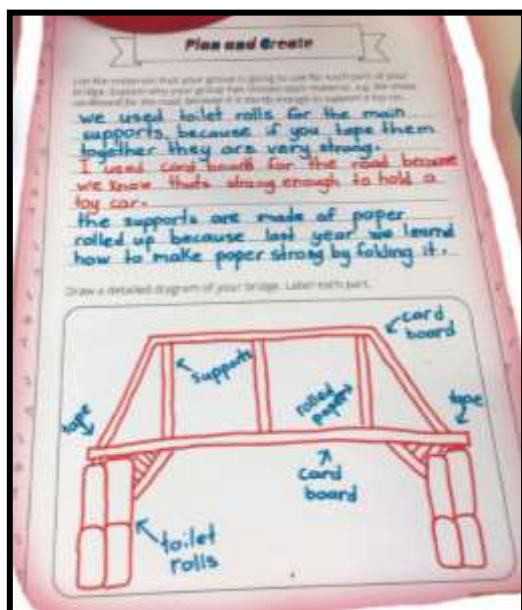 Plan and Create
List the materials that your group is going to use for each part of your
bridge. Explain why your group has chosen each material, e.g. We chose
cardboard for the road because it is sturdy enough to support a toy car.
we used toilet rolls for the main
supports because if you tape them
together they are very strong.
I used card board for the road because
we know thats strong enough to hold a
toy car.
the supports are made of paper
rolled up because last year we learnd
how to make paper strong by folding it.
Draw a detailed diagram of your bridge. Label each part.
card
board
supports
rolled
papers
tape
tape
card
board
toilet
rolls